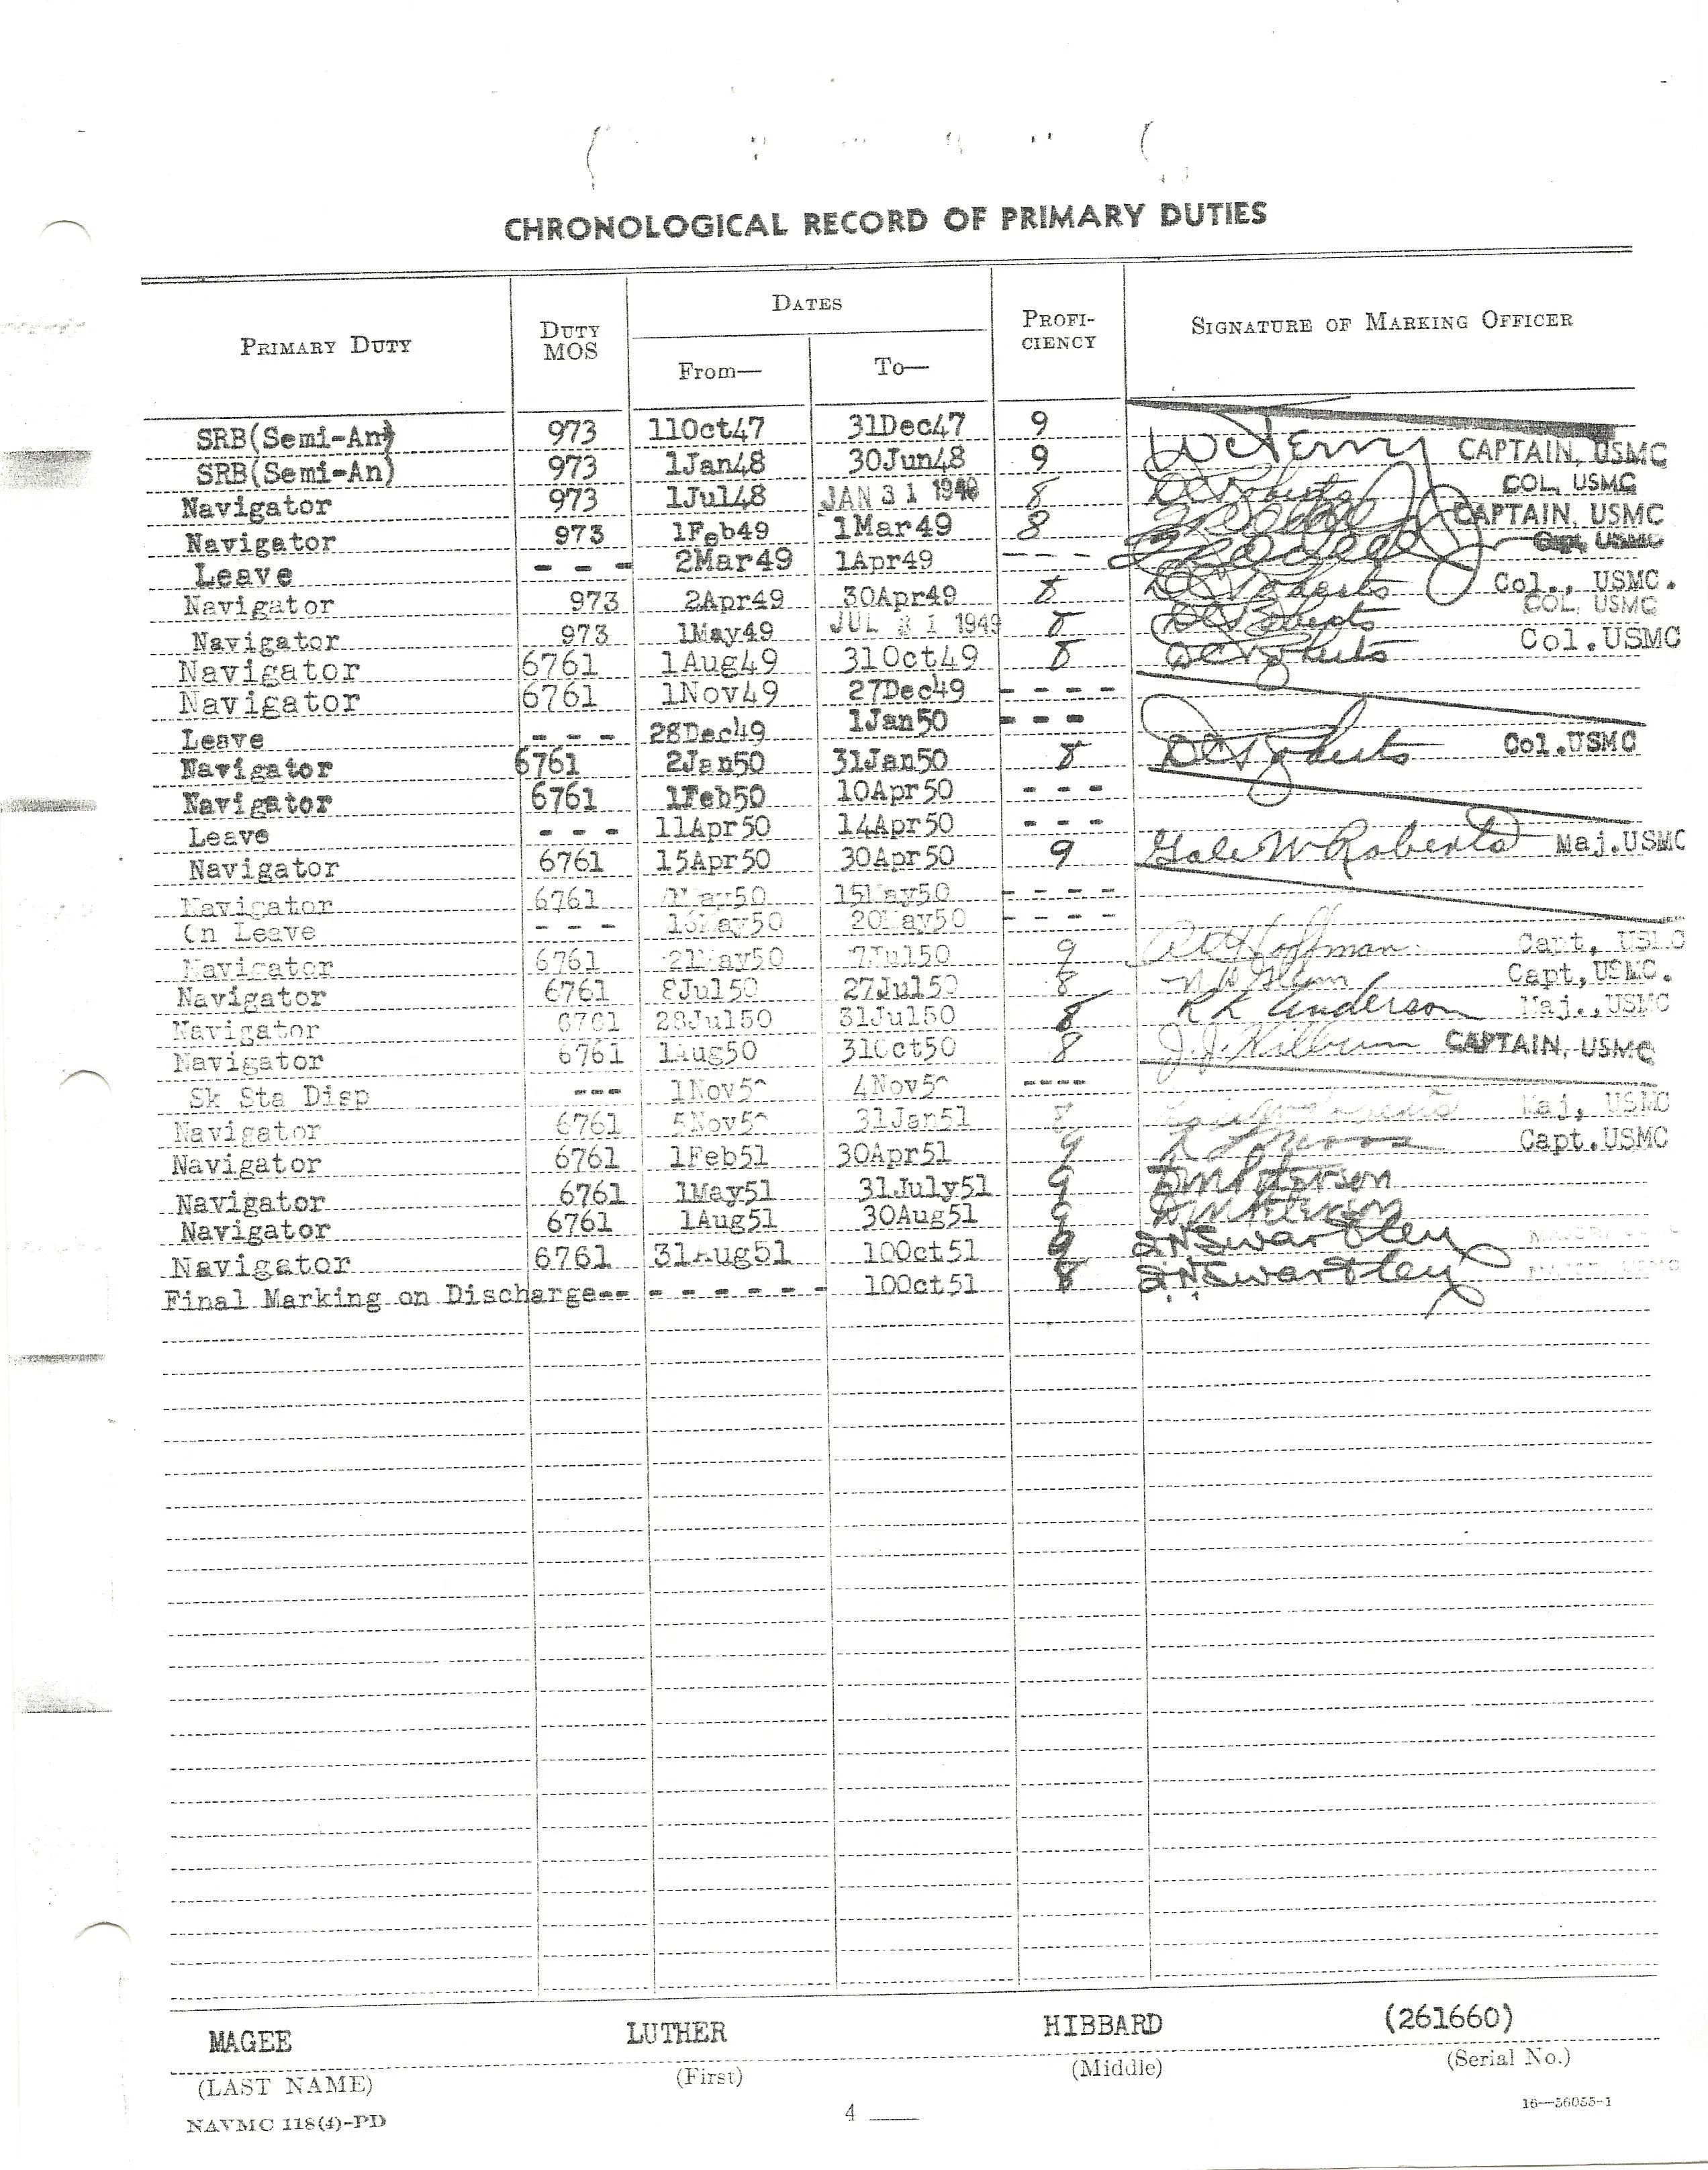 CHRONOLOGICAL RECORD OF PRIMARY DUTIES
PRIMARY DUTY DUTY MOS DATES PROFI-CIENCY SIGNATURE OF MARKING OFFICER
From— To—
SRB(Semi-An) 973 11Oct47 31Dec47 9
SRB(Semi-An) 973 1Jan48 30Jun48 9 CAPTAIN, USMC
Navigator 973 1Jul48 JAN 31 1949 8 COL, USMC
Navigator 973 1Feb49 1Mar49 8 CAPTAIN, USMC
Leave - - - 2Mar49 1Apr49 - - - Capt, USMC
Navigator 973 2Apr49 30Apr49 8 DC Roberts Col., USMC.
Navigator 973 1May49 JUL 31 1949 8 DC Roberts COL, USMC
Navigator 6761 1Aug49 31Oct49 8 DC Roberts Col.USMC
Navigator 6761 1Nov49 27Dec49 - - - -
Leave - - - 28Dec49 1Jan50 - - -
Navigator 6761 2Jan50 31Jan50 8 DC Roberts Col.USMC
Navigator 6761 1Feb50 10Apr50 - - -
Leave - - - 11Apr50 14Apr50 - - -
Navigator 6761 15Apr50 30Apr50 9 Gale W Roberts Maj.USMC
Navigator 6761 1May50 15May50 - - - -
On Leave - - - 16May50 20May50 - - - -
Navigator 6761 21May50 7Jul50 9 Hoffman Capt, USMC
Navigator 6761 8Jul50 27Jul50 8 Capt, USMC.
Navigator 6761 28Jul50 31Jul50 8 R L Anderson Maj., USMC
Navigator 6761 1Aug50 31Oct50 8 J. J. Kilburn CAPTAIN, USMC
Sk Sta Disp --- 1Nov50 4Nov50 ----
Navigator 6761 5Nov50 31Jan51 8 Maj, USMC
Navigator 6761 1Feb51 30Apr51 9 Capt.USMC
Navigator 6761 1May51 31July51 9 D M Peterson
Navigator 6761 1Aug51 30Aug51 9 D M Peterson
Navigator 6761 31Aug51 10Oct51 9 Swartley
Final Marking on Discharge-- - - - - - - 10Oct51 8 Swartley
MAGEE LUTHER HIBBARD (261660)
(LAST NAME) (First) (Middle) (Serial No.)
NAVMC 118(4)-PD 4 16—56055-1